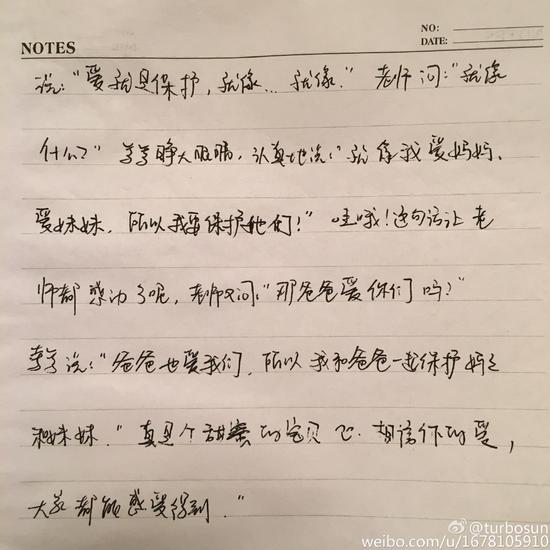 NO:
DATE:
NOTES
说:"爱就是保护,就像…就像."老师问:"就像
什么?"等等睁大眼睛,认真地说:"就像我爱妈妈、
爱妹妹,所以我要保护他们!"哇哦!这句话让老
师都感动了呢,老师又问:"那爸爸爱你们吗?"
等等说:"爸爸也爱我们,所以我和爸爸一起保护妈妈
和妹妹."真是个甜蜜的宝贝 想该你的爱,
大家都能感受得到."
@turbosun
weibo.com/u/1678105910